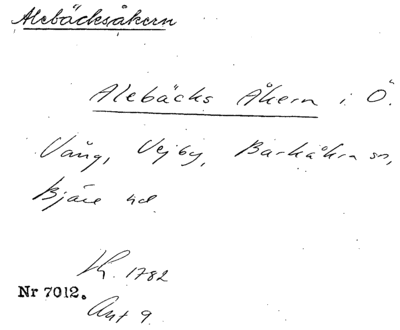 Alebäcksåkern
Alebäcks Åkern i Ö.
Vång, Vejby, Barkåkra sn,
Bjäre hd
Lh. 1782
Nr 7012.
Akt 9.